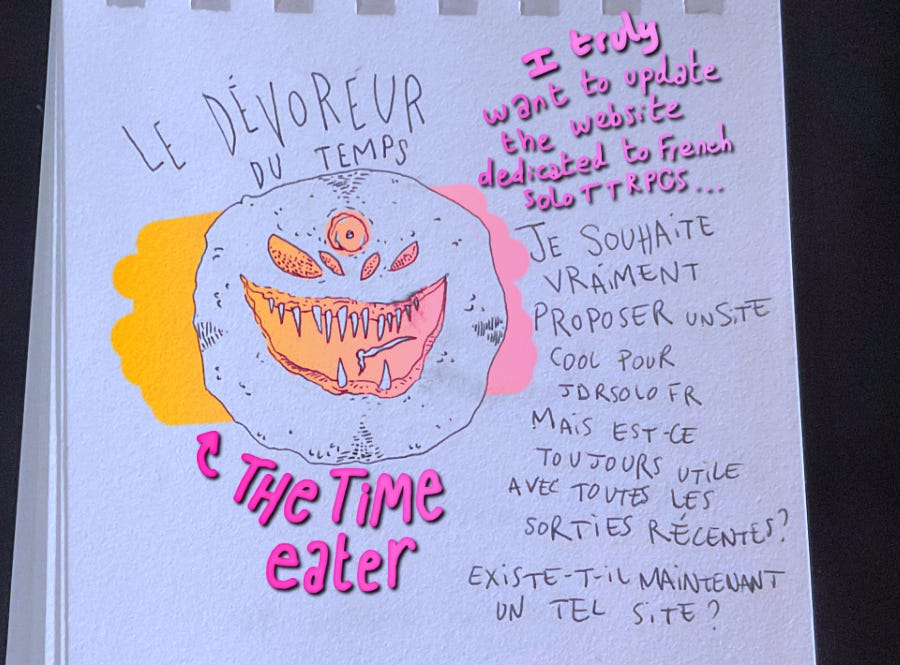 LE DÉVOREUR
DU TEMPS
THE TIME
eater
I truly
want to update
the website
dedicated to French
Solo TTRPGS...
JE SOUHAITE
VRAIMENT
PROPOSER UN SITE
COOL POUR
JDRSOLO FR
MAIS EST-CE
TOUJOURS UTILE
AVEC TOUTES LES
SORTIES RÉCENTES?
EXISTE-T-IL MAINTENANT
UN TEL SITE?